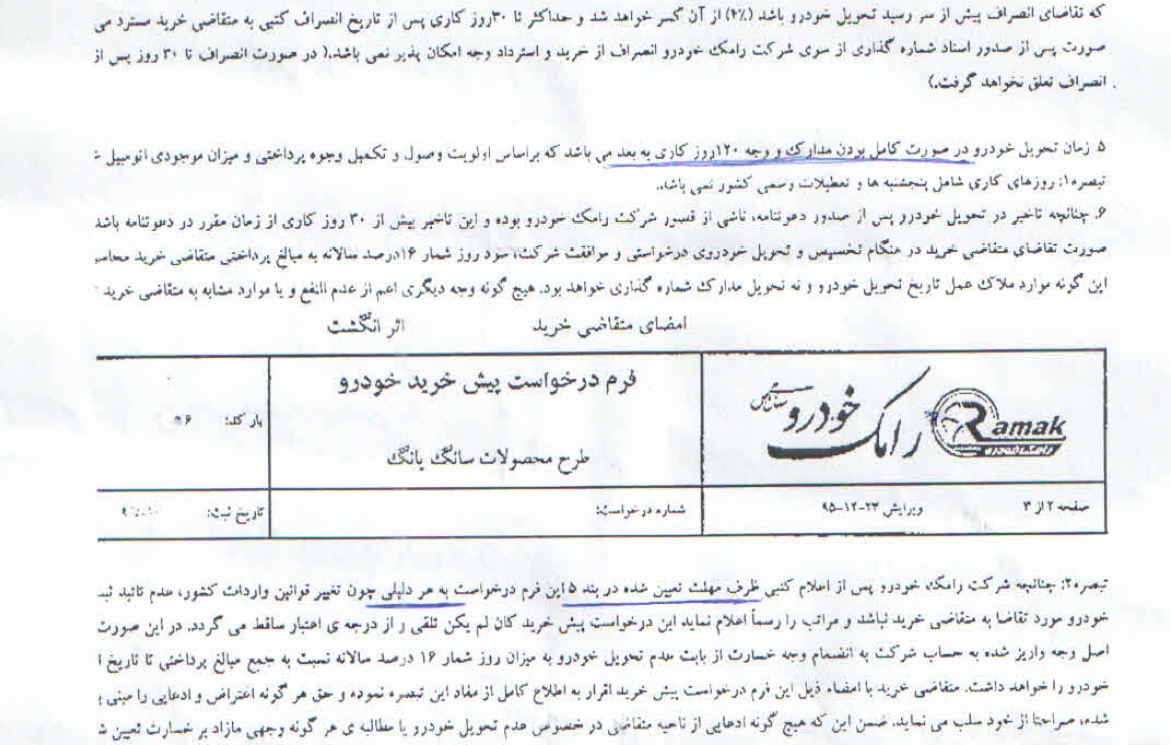 که تقاضای انصراف پیش از سر رسید تحویل خودرو باشد (۴٪) از آن کسر خواهد شد و حداکثر تا ۳۰روز کاری پس از تاریخ انصراف کتبی به متقاضی خرید مسترد می
صورت پس از صدور اسناد شماره گذاری از سوی شرکت رامک خودرو انصراف از خرید و استرداد وجه امکان پذیر نمی باشد.( در صورت انصراف تا ۳۰ روز پس از
انصراف تعلق نخواهد گرفت.)
۵ زمان تحویل خودرو در صورت کامل بودن مدارک و وجه ۱۲۰روز کاری به بعد می باشد که براساس اولویت وصول و تکمیل وجوه پرداختی و میزان موجودی اتومبیل
تبصره۱: روزهای کاری شامل پنجشنبه ها و تعطیلات رسمی کشور نمی باشد.
۶. چنانچه تاخیر در تحویل خودرو پس از صدور دعوتنامه، ناشی از قصور شرکت رامک خودرو بوده و این تاخیر بیش از ۳۰ روز کاری از زمان مقرر در دعوتنامه باشد
صورت تقاضای متقاضی خرید در هنگام تخصیص و تحویل خودروی درخواستی و موافقت شرکت، سود روز شمار ۱۶درصد سالانه به مبالغ پرداختی متقاضی خرید
این گونه موارد ملاک عمل تاریخ تحویل خودرو و نه تحویل مدارک شماره گذاری خواهد بود. هیچ گونه وجه دیگری اعم از عدم النفع و یا موارد مشابه به متقاضی خرید
امضای متقاضی خرید اثر انگشت
رامک خودرو Ramak
فرم درخواست پیش خرید خودرو
طرح محصولات سانگ یانگ
بار کد:
صفحه ۲ از ۳ ویرایش ۲۳-۱۲-۹۵ شماره درخواست: تاریخ ثبت:
تبصره۲: چنانچه شرکت رامک خودرو پس از اعلام کتبی ظرف مهلت تعیین شده در بند ۵ این فرم درخواست به هر دلیلی چون تغییر قوانین واردات کشور، عدم تائید
خودرو مورد تقاضا به متقاضی خرید نباشد و مراتب را رسماً اعلام نماید این درخواست پیش خرید کان لم یکن تلقی و از درجه ی اعتبار ساقط می گردد. در این صورت
اصل وجه واریز شده به حساب شرکت به انضمام وجه خسارت از بابت عدم تحویل خودرو به میزان روز شمار ۱۶ درصد سالانه نسبت به جمع مبالغ پرداختی تا تاریخ
خودرو را خواهد داشت. متقاضی خرید با امضاء ذیل این فرم درخواست پیش خرید اقرار به اطلاع کامل از مفاد این تبصره نموده و حق هر گونه اعتراض و ادعایی را مبنی
شده، صراحتا از خود سلب می نماید. ضمن این که هیچ گونه ادعایی از ناحیه متقاضی در خصوص عدم تحویل خودرو یا مطالبه ی هر گونه وجهی مازاد بر خسارت تعیین